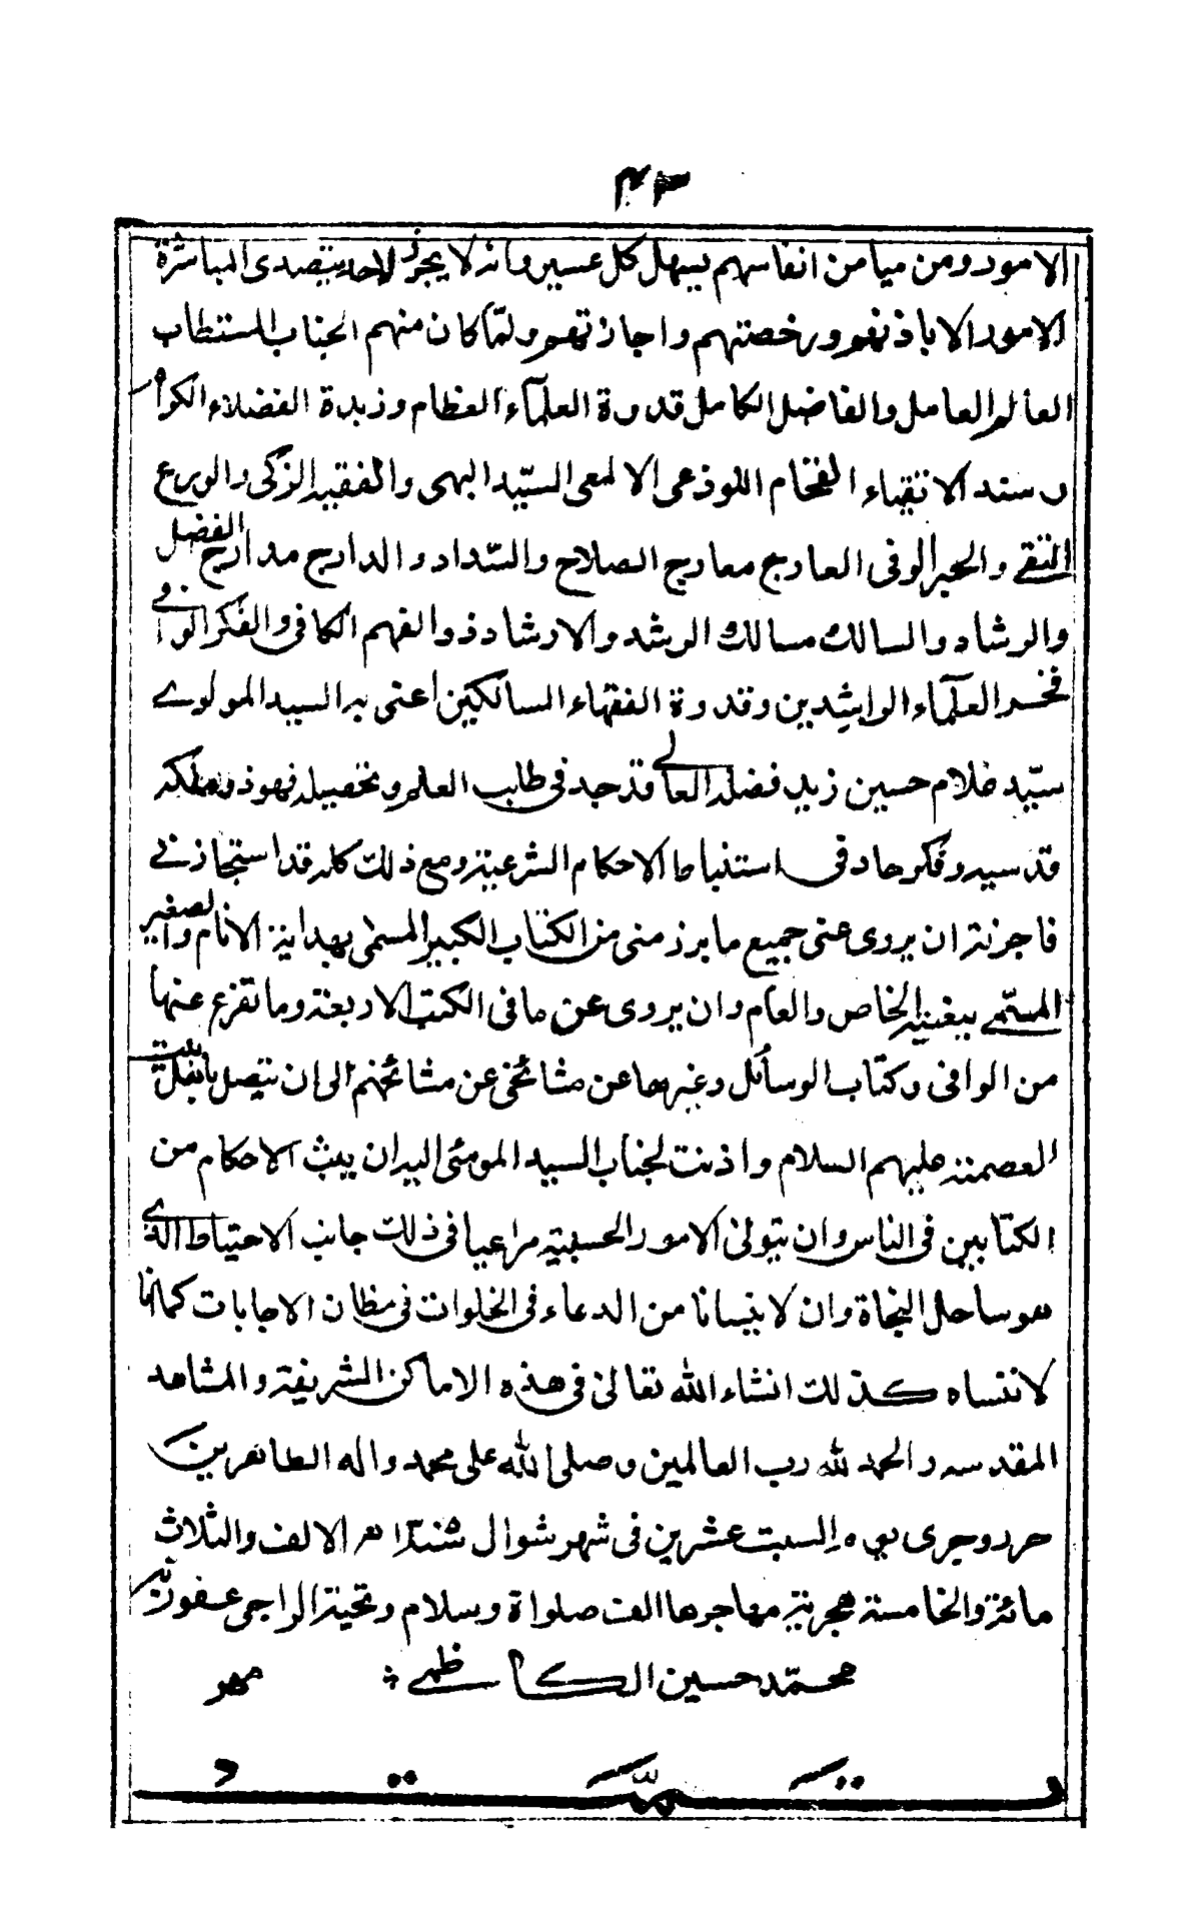 ٤٣
الامور ومن ميامن انفاسهم يسهل كل عسير وانه لا يجوز لاحد يتصدى المباشرة
الامور الا باذنهم ورخصتهم واجازتهم ولمّا كان منهم الجناب المستطاب
العالم العامل والفاضل الكامل قدوة العلمآء العظام وزبدة الفضلاء الكرام
وسند الاتقياء الفخام اللوذعى الالمعى السيّد البهى والفقيه الزكى والورع
التقے والحبر الوفى العارج معارج الصلاح والسّداد والدارج مدارج الفضل
والرشاد والسالك مسالك الرشد والارشاد ذو الفهم الكافى والفكر الوافى
فخر العلمآء الراشدين وقدوة الفقهاء السالكين اعنى به السيد المولوے
سيّد غلام حسين زيد فضله العالے قد جد فى طلب العلم وتحصيله فهو ذو ملكه
قدسيه وفكر حاد فى استنباط الاحكام الشرعية ومع ذلك كله قد استجازنے
فاجزته ان يروى عنى جميع ما برز منى من الكتاب الكبير المسمى بهداية الانام والصغير
المسمّے ببغية الخاص والعام وان يروى عن ما فى الكتب الاربعة وما تفرع عنها
من الوافى وكتاب الوسائل وغيرها عن مشائخى عن مشائخهم الى ان يتصل باهلبيت
العصمة عليهم السلام واذنت لجناب السيد المومئ اليه ان يبث الاحكام من
الكتابين فى الناس وان يتولى الامور الحسبيه مراعيا فى ذلك جانب الاحتياط الذے
هو ساحل النجاة وان لا ينسانا من الدعاء فى الخلوات فى مظان الاجابات كما انا
لا ننساه كذلك انشاء الله تعالى فى هذه الاماكن الشريفة والمشاهد
المقدسه والحمد لله رب العالمين وصلى الله على محمد واله الطاهرين
حرر وجرى السبت عشرين فى شهر شوال الالف والثلاث
مائة والخامسة هجرية مهاجرها الف صلواة وسلام وتحية الراجى عفو ربه
محمّد حسين الكاظمے مهر